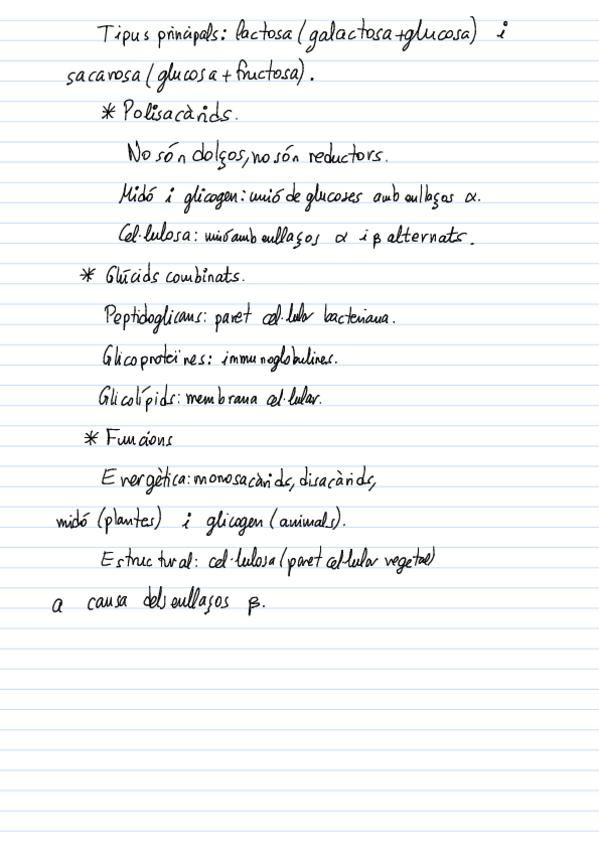 Tipus principals: lactosa (galactosa+glucosa) i
sacarosa (glucosa + fructosa).
* Polisacàrids.
No són dolços, no són reductors.
Midó i glicogen: unió de glucoses amb enllaços α.
Cel·lulosa: unió amb enllaços α i β alternats.
* Glúcids combinats.
Peptidoglicans: paret cel·lular bacteriana.
Glicoproteïnes: immunoglobulines.
Glicolípids: membrana cel·lular.
* Funcions
Energètica: monosacàrids, disacàrids,
midó (plantes) i glicogen (animals).
Estructural: cel·lulosa (paret cel·lular vegetal)
a causa dels enllaços β.